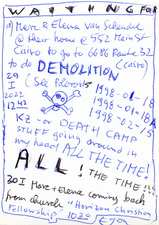 WAITING FOR
1) Marc & Elena van Schendel
@ their home @ 552 Main St
Cairo to go to 6686 Route 32
to do DEMOLITION (Cairo)
29 (See Polaroids
I
2022
1242
1998-01-18
1998-01-18A
1998-02-15
K2-or DEATH CAMP
STUFF going around in
my head ALL THE TIME!
ALL! THE TIME!!!
30 I Marc + Elena coming back
from church "Horizon Christian
Fellowship" 1020